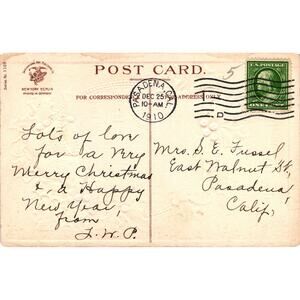 POST CARD.
NEW YORK BERLIN
FOR CORRESPONDENCE
ADDRESS ONLY
PASADENA, CAL.
DEC 25
10-AM
1910
U.S. POSTAGE
5
Lots of love
for a Very
Merry Christmas
& a Happy
New Year,
from
Mrs. S. E. Fussel
East Walnut St,
Pasadena
Calif,